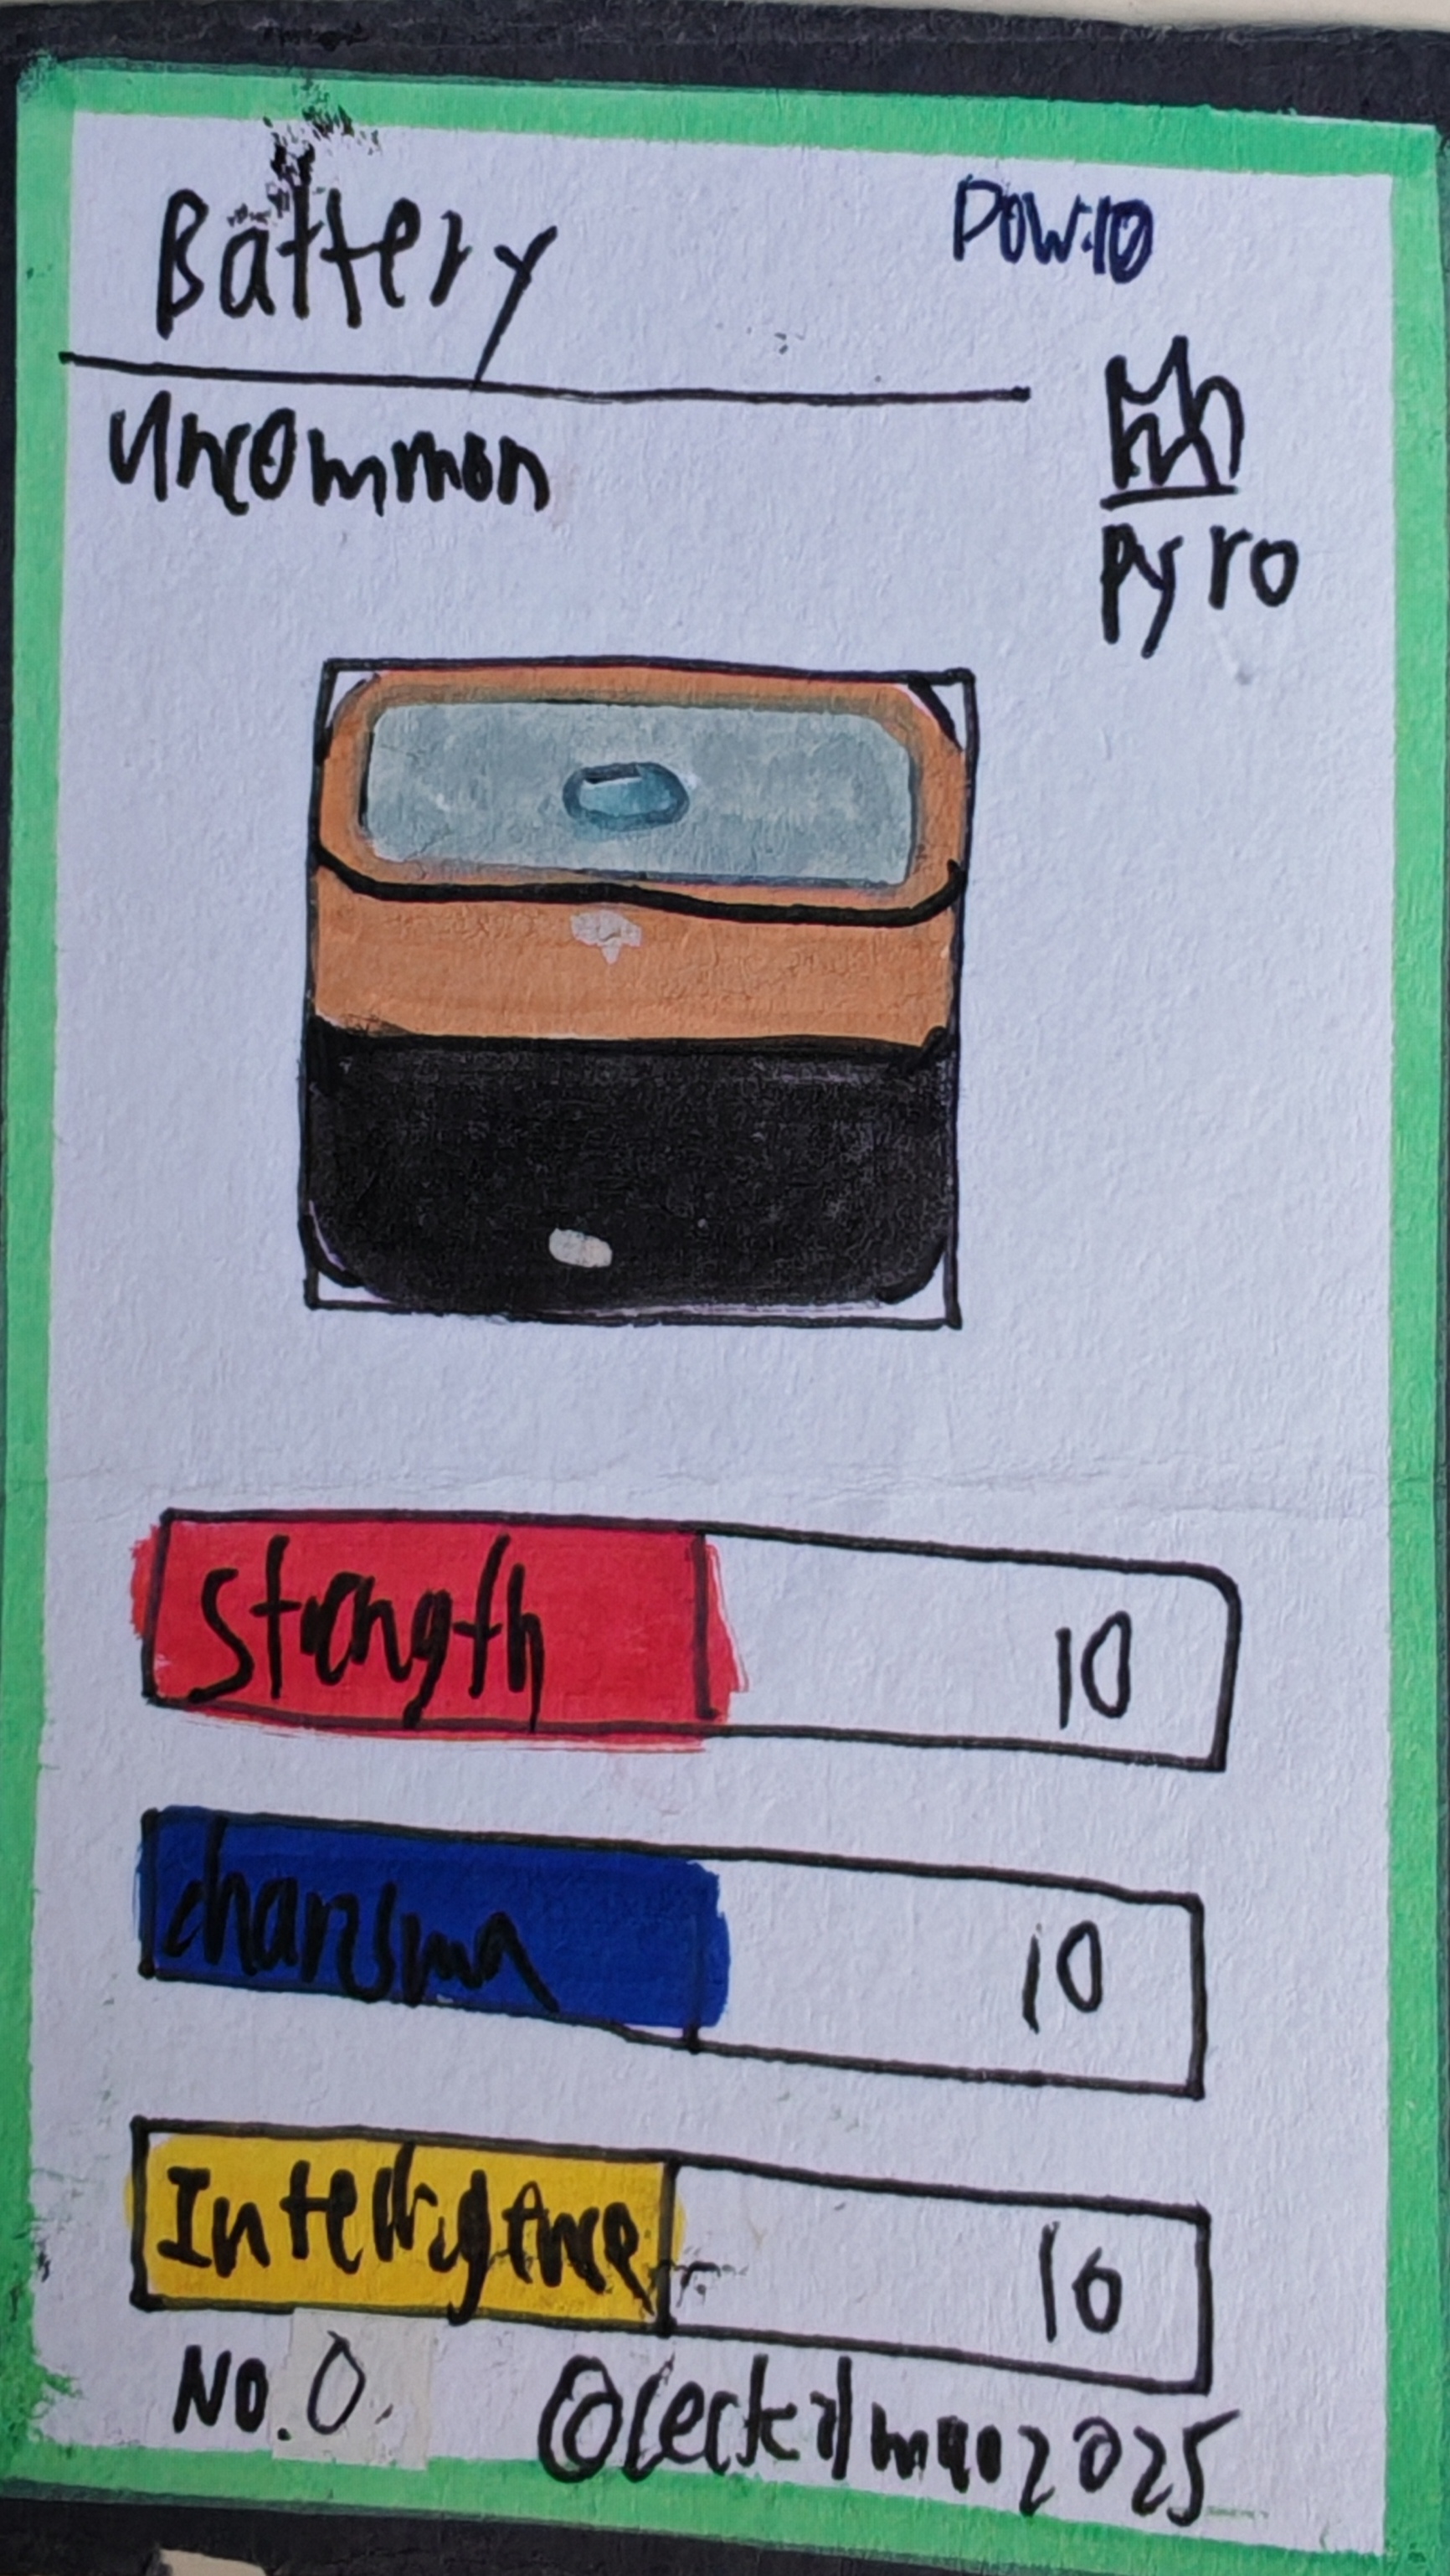 Battery
Pow:10
uncommon
pyro
strength
10
charisma
10
Intelligence
10
No. 0
2025